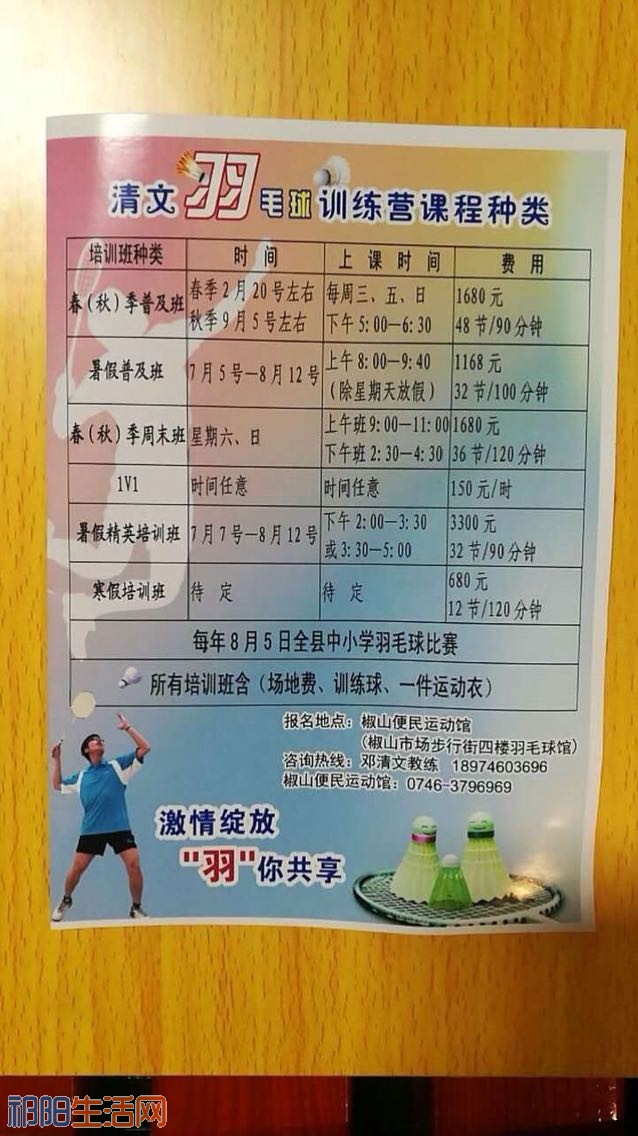 清文羽毛球训练营课程种类
培训班种类 时间 上课时间 费用
春(秋)季普及班 春季2月20号左右 每周三、五、日 1680元
秋季9月5号左右 下午5:00—6:30 48节/90分钟
暑假普及班 7月5号—8月12号 上午8:00—9:40 1168元
(除星期天放假) 32节/100分钟
春(秋)季周末班 星期六、日 上午班9:00—11:00 1680元
下午班2:30—4:30 36节/120分钟
1V1 时间任意 时间任意 150元/时
暑假精英培训班 7月7号—8月12号 下午2:00—3:30 3300元
或3:30—5:00 32节/90分钟
寒假培训班 待定 待定 680元
12节/120分钟
每年8月5日全县中小学羽毛球比赛
所有培训班含(场地费、训练球、一件运动衣)
报名地点:椒山便民运动馆
(椒山市场步行街四楼羽毛球馆)
咨询热线:邓清文教练 18974603696
椒山便民运动馆:0746-3796969
激情绽放
"羽"你共享
祁阳生活网